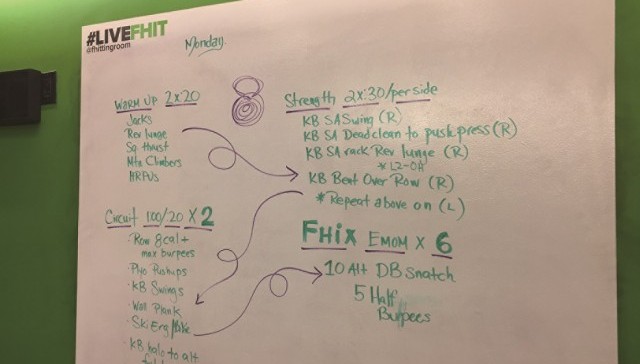 #LIVEFHIT
@fhittingroom
Monday
WARM UP 2x20
Jacks
Rev lunge
Sq thrust
Mtn Climbers
HRPUs
Strength 2X:30/per side
KB SA Swing (R)
KB SA Dead clean to push press (R)
KB SA rack Rev lunge (R)
KB Bent Over Row (R)
* Repeat above on (L)
Circuit 100/20 X 2
· Row 8cal +
max burpees
· Plyo Pushups
· KB Swings
· Wall Plank
· Ski Erg/Bike
· KB halo to alt
FHix EMOM X 6
10 Alt DB Snatch
5 Half
Burpees